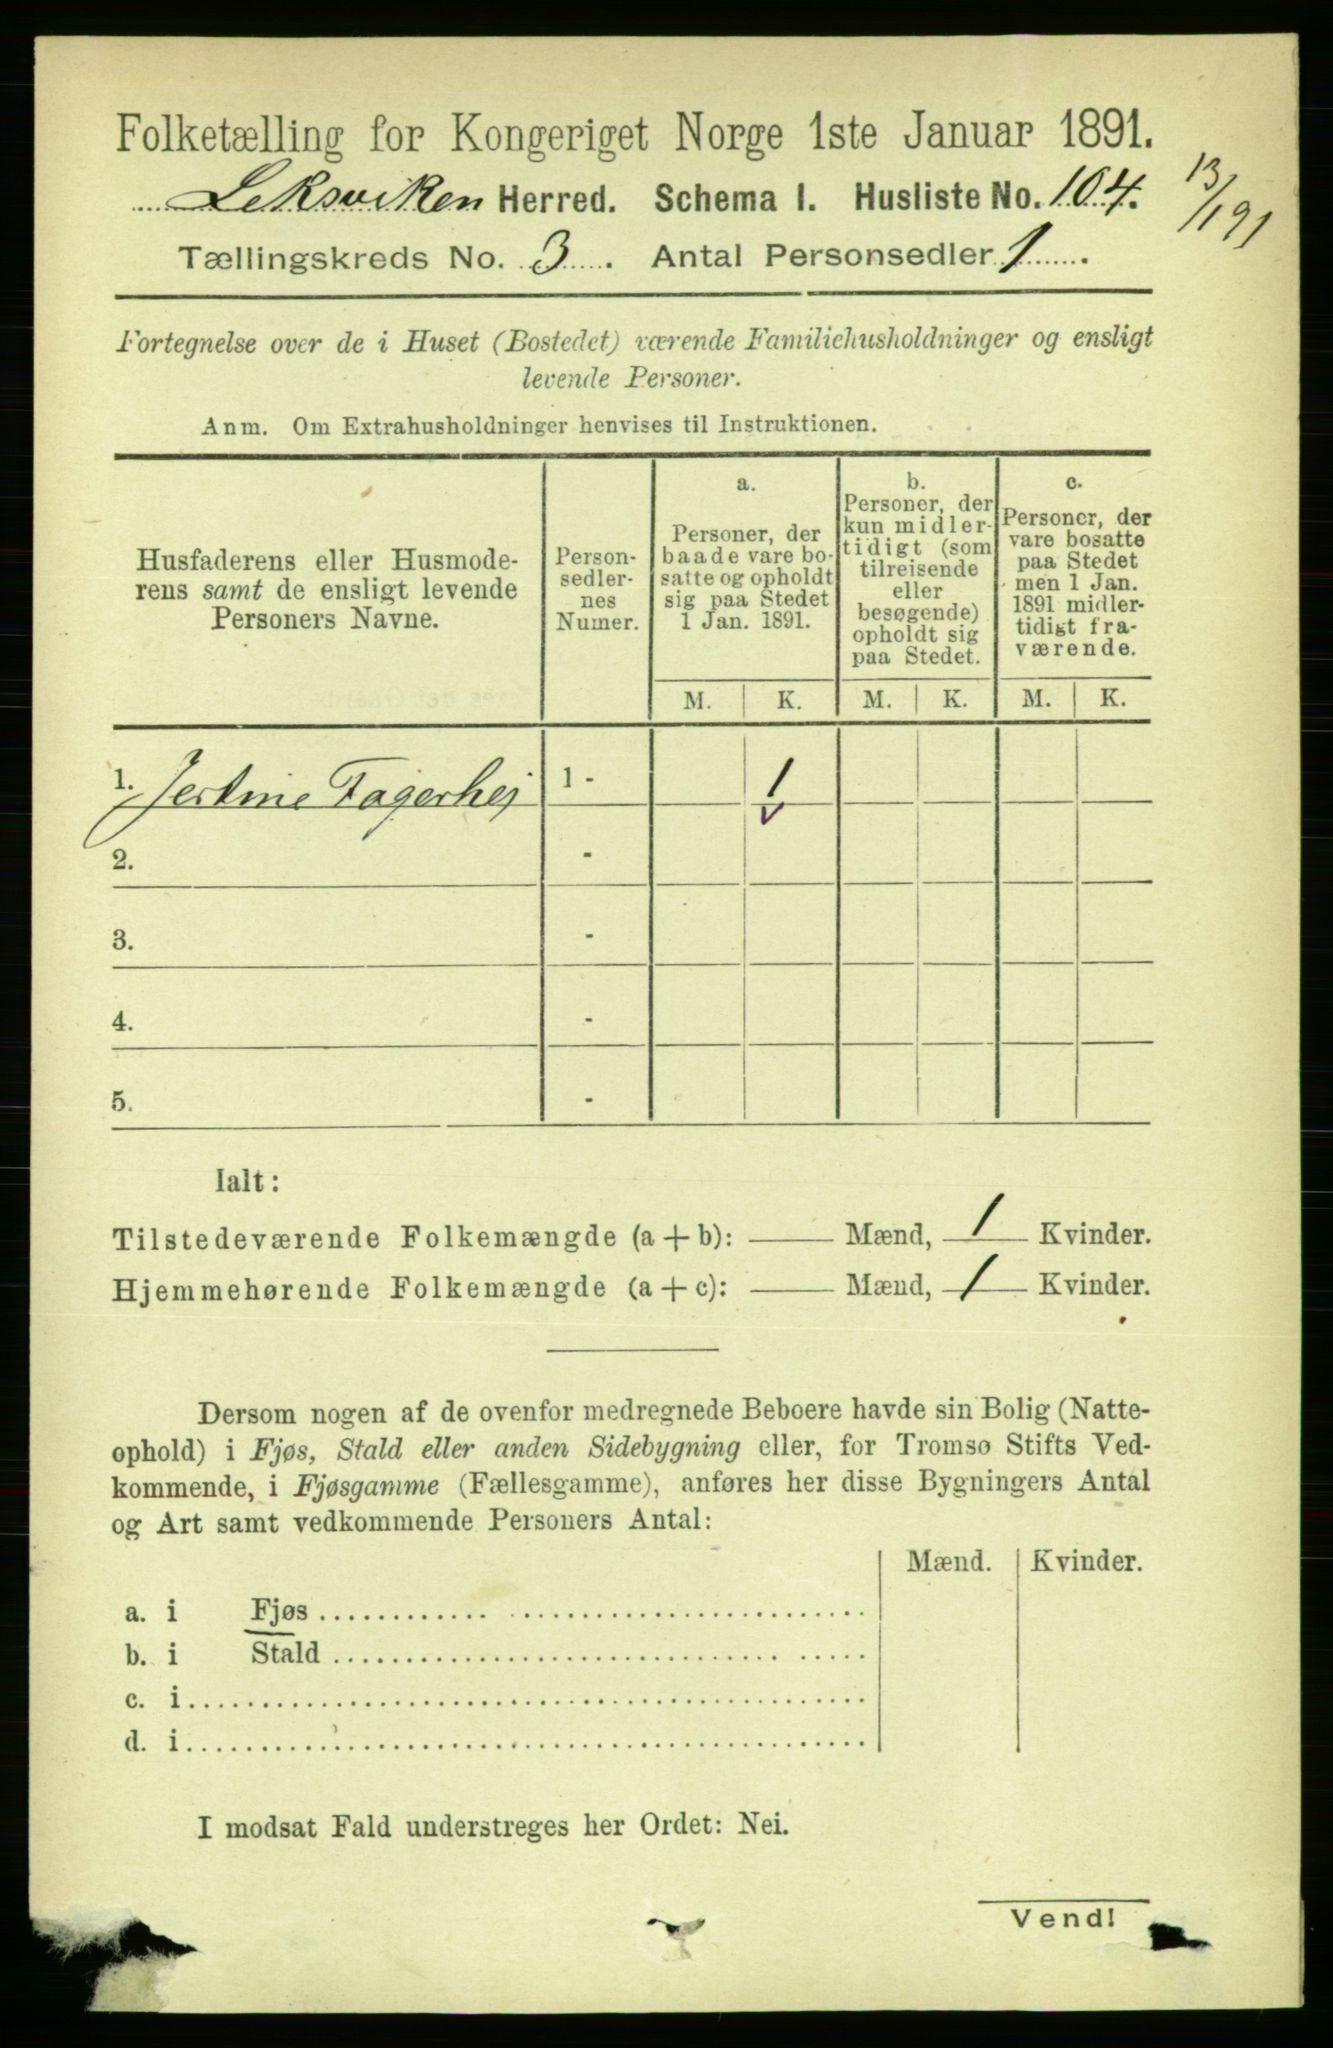 Folketælling for Kongeriget Norge 1ste Januar 1891.
Leksviken Herred. Schema I. Husliste No. 104.
13/1 91
Tællingskreds No. 3. Antal Personsedler 1.
Fortegnelse over de i Huset (Bostedet) værende Familiehusholdninger og ensligt
levende Personer.
Anm. Om Extrahusholdninger henvises til Instruktionen.
Husfaderens eller Husmode-
rens samt de ensligt levende
Personers Navne.
Person-
sedler-
nes
Numer.
a.
Personer, der
baade vare bo-
satte og opholdt
sig paa Stedet
1 Jan. 1891.
b.
Personer, der
kun midler-
tidigt (som
tilreisende
eller
besøgende)
opholdt sig
paa Stedet.
c.
Personer, der
vare bosatte
paa Stedet
men 1 Jan.
1891 midler-
tidigt fra-
værende.
M. K. M. K. M. K.
1. Jertine Fagerhej 1 - 1
2. -
3. -
4. -
5. -
Ialt:
Tilstedeværende Folkemængde (a + b): Mænd, 1 Kvinder.
Hjemmehørende Folkemængde (a + c): Mænd, 1 Kvinder.
Dersom nogen af de ovenfor medregnede Beboere havde sin Bolig (Natte-
ophold) i Fjøs, Stald eller anden Sidebygning eller, for Tromsø Stifts Ved-
kommende, i Fjøsgamme (Fællesgamme), anføres her disse Bygningers Antal
og Art samt vedkommende Personers Antal:
Mænd. Kvinder.
a. i Fjøs
b. i Stald
c. i
d. i
I modsat Fald understreges her Ordet: Nei.
Vend!